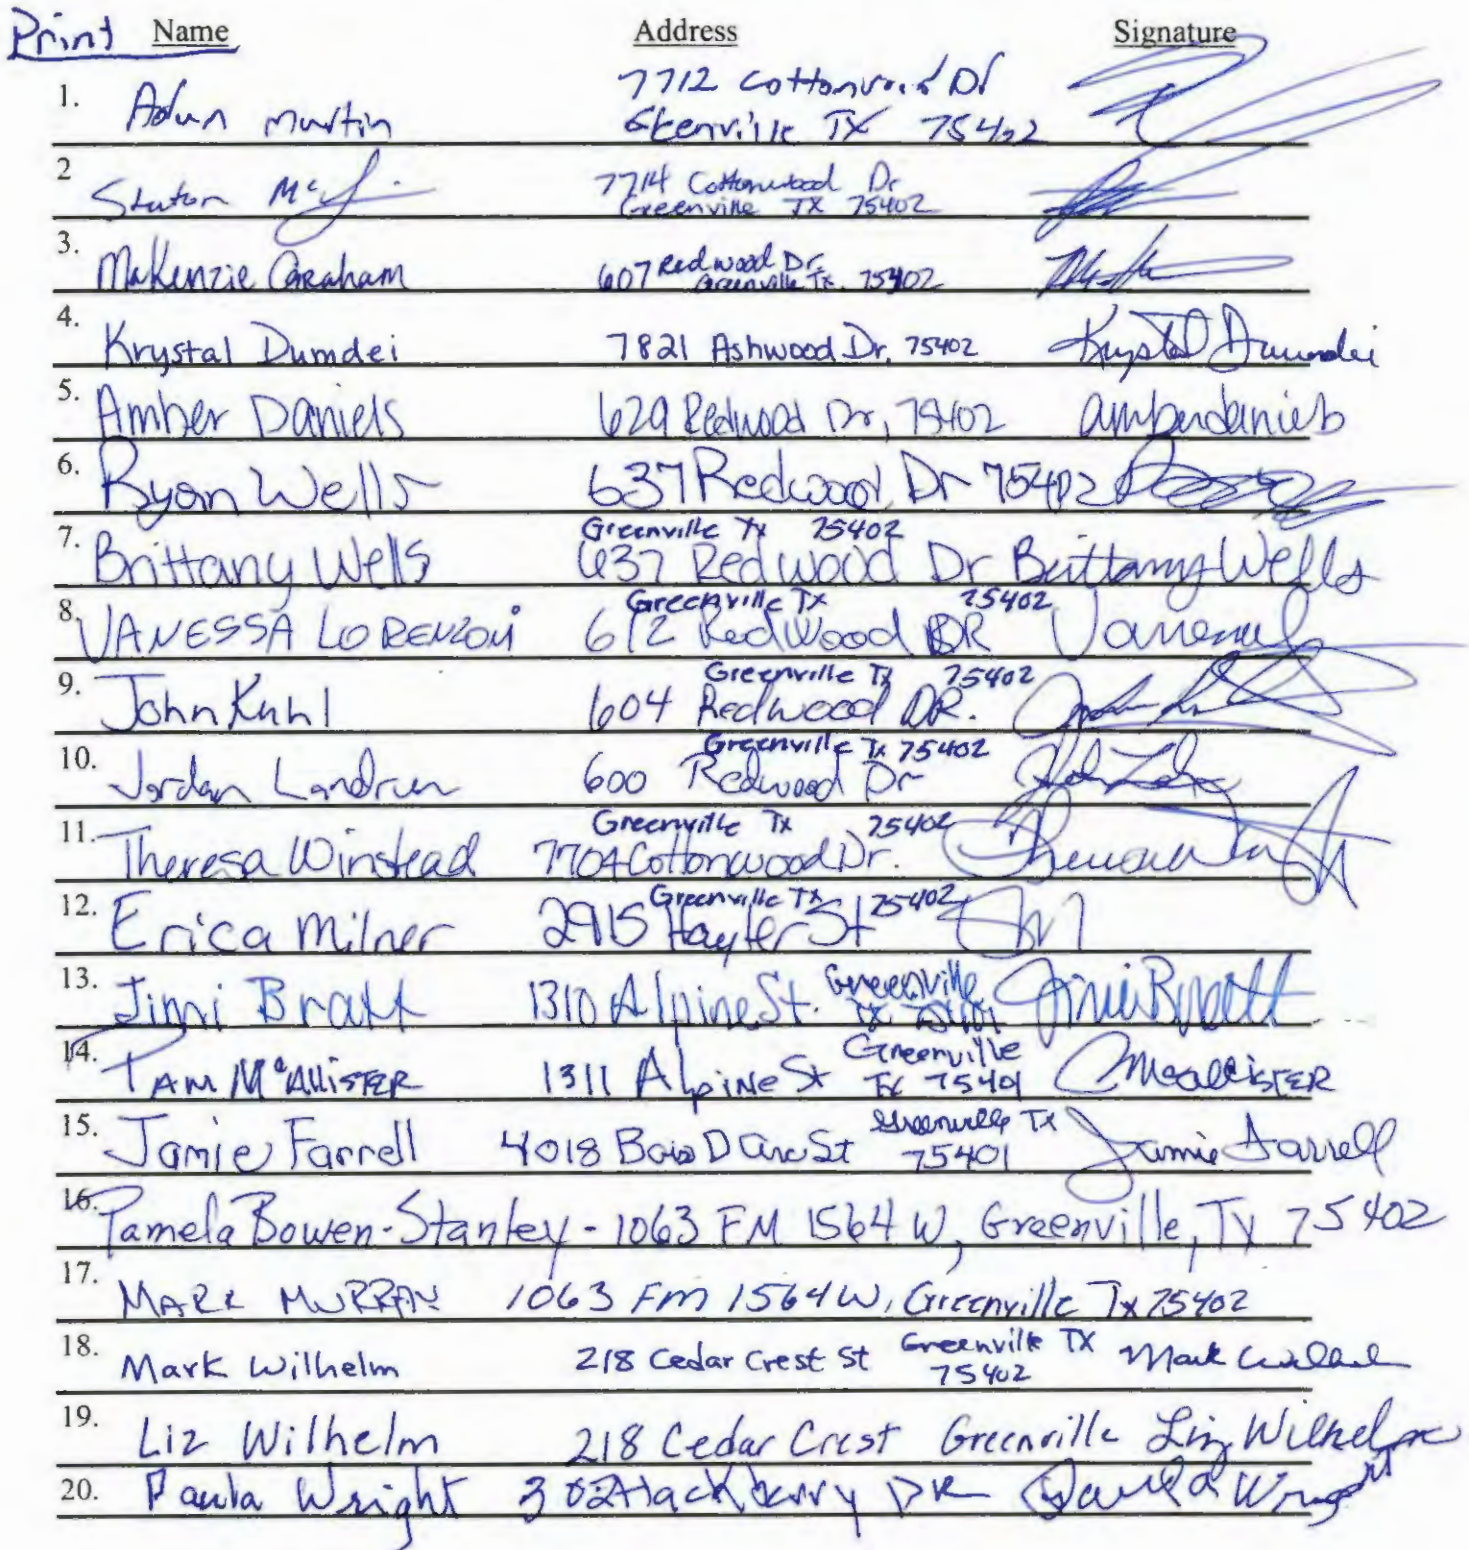 Print Name Address Signature
1. Adun Martin 7712 Cottonwood Dr
Greenville TX 75402
2 Staton Mc 7714 Cottonwood Dr
Greenville TX 75402
3. Makenzie Graham 607 Redwood Dr
Greenville Tx. 75402
4. Krystal Dumdei 7821 Ashwood Dr, 75402 Krystal Dumdei
5. Amber Daniels 629 Redwood Dr, 75402 amberdaniels
6. Ryan Wells 637 Redwood Dr 75402
Greenville Tx 75402
7. Brittany Wells 637 Redwood Dr Brittany Wells
Greenville Tx 75402
8. VANESSA LORENZONI 612 RedWood DR
Greenville Tx 75402
9. John Kuhl 604 Redwood DR.
Greenville Tx 75402
10. Jordan Landrum 600 Redwood Dr
Greenville Tx 75402
11. Theresa Winstead 7704 Cottonwood Dr.
Greenville Tx 75402
12. Erica Milner 2915 Hayter St
13. Jimi Bratt 1310 Alpine St. Greenville
TX 75401
14. PAM McALLISTER 1311 Alpine St Greenville
TX 75401 McALLISTER
15. Jamie Farrell 4018 Bois D Arc St Greenville Tx
75401 Jamie Farrell
16. Pamela Bowen-Stanley - 1063 FM 1564 W, Greenville, TX 75402
17. MARK MURRAY 1063 Fm 1564 W, Greenville Tx 75402
18. Mark Wilhelm 218 Cedar Crest St Greenville TX
75402 Mark
19. Liz Wilhelm 218 Cedar Crest Greenville Liz Wilhelm
20. Paula Wright 302 Hackberry DR Paula Wright